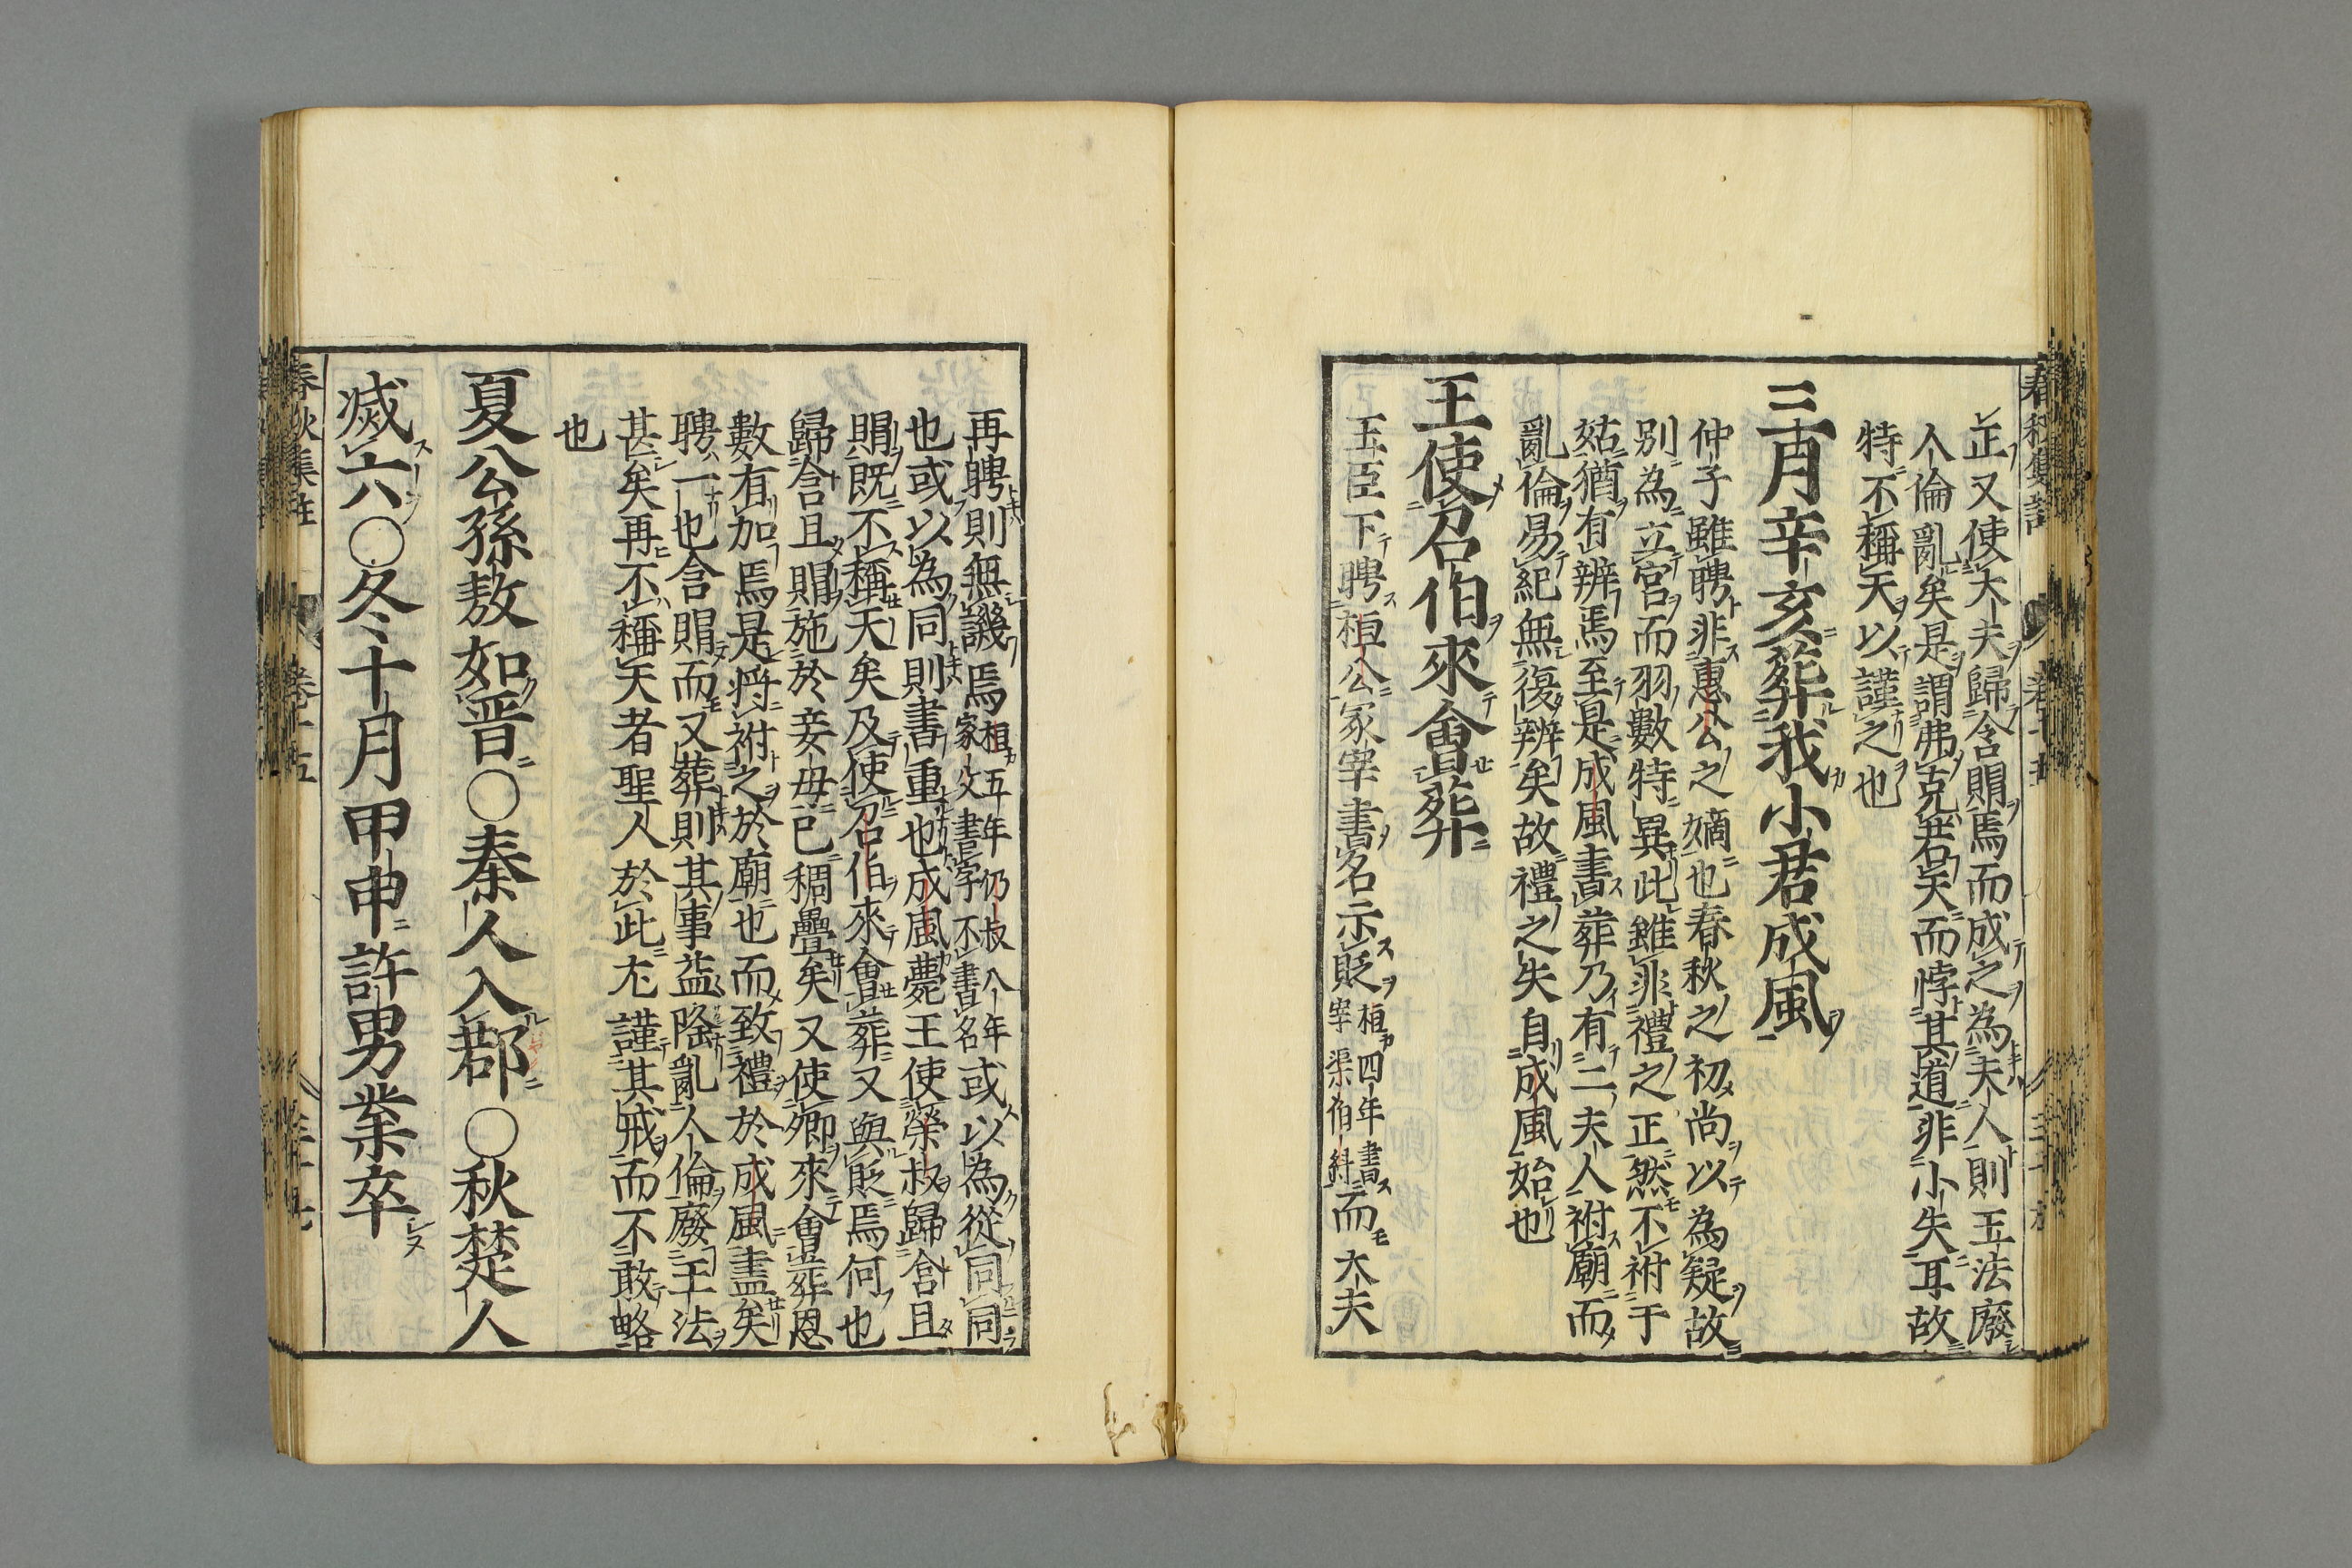 正又使大夫歸含賵焉而成之為夫人則王法廢
人倫亂矣是謂弗克若天而悖其道非小失耳故
特不稱天以謹之也
三月辛亥葬我小君成風
仲子雖聘非惠公之嫡也春秋之初尚以為疑故
別為立宮而羽數特異此雖非禮之正然不祔于
姑猶有辨焉至是成風書葬乃有二夫人祔廟而
亂倫易紀無復辨矣故禮之失自成風始也
王使召伯來會葬
王臣下聘桓公冢宰書名示貶桓四年書宰渠伯糾而大夫
再聘則無譏焉桓五年仍叔八年家父書字不書名或以為從同同
也或以為同則書重也成風薨王使榮叔歸含且
賵既不稱天矣及使召伯來會葬又與貶焉何也
歸含且賵施於妾母已稠疊矣又使卿來會葬恩
數有加焉是將祔之於廟也而致禮於成風盡矣
聘一也含賵而又葬則其事益隆亂人倫廢王法
甚矣再不稱天者聖人於此尤謹其戒而不敢略
也
夏公孫敖如晋○秦人入鄀○秋楚人
滅六○冬十月甲申許男業卒
春秋集註